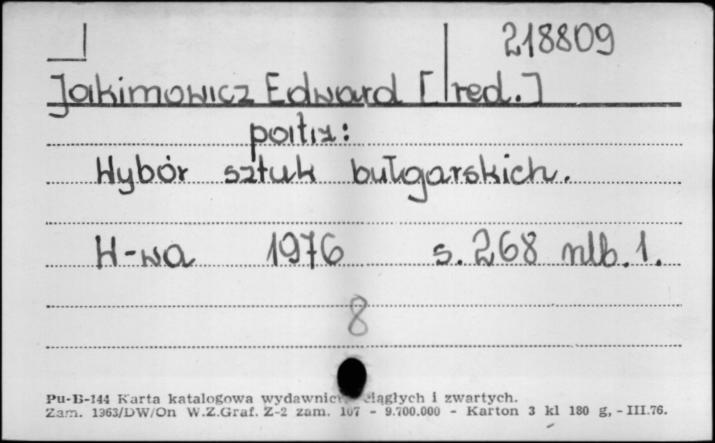 218809
Jakimowicz Edward [red.]
patrz:
Wybór sztuk bułgarskich.
W-wa 1976 s. 268 nlb. 1.
8
Pu-B-144 Karta katalogowa wydawnictw ciągłych i zwartych.
Zam. 1963/DW/On W.Z.Graf. Z-2 zam. 107 - 9.700.000 - Karton 3 kl 180 g, - III.76.